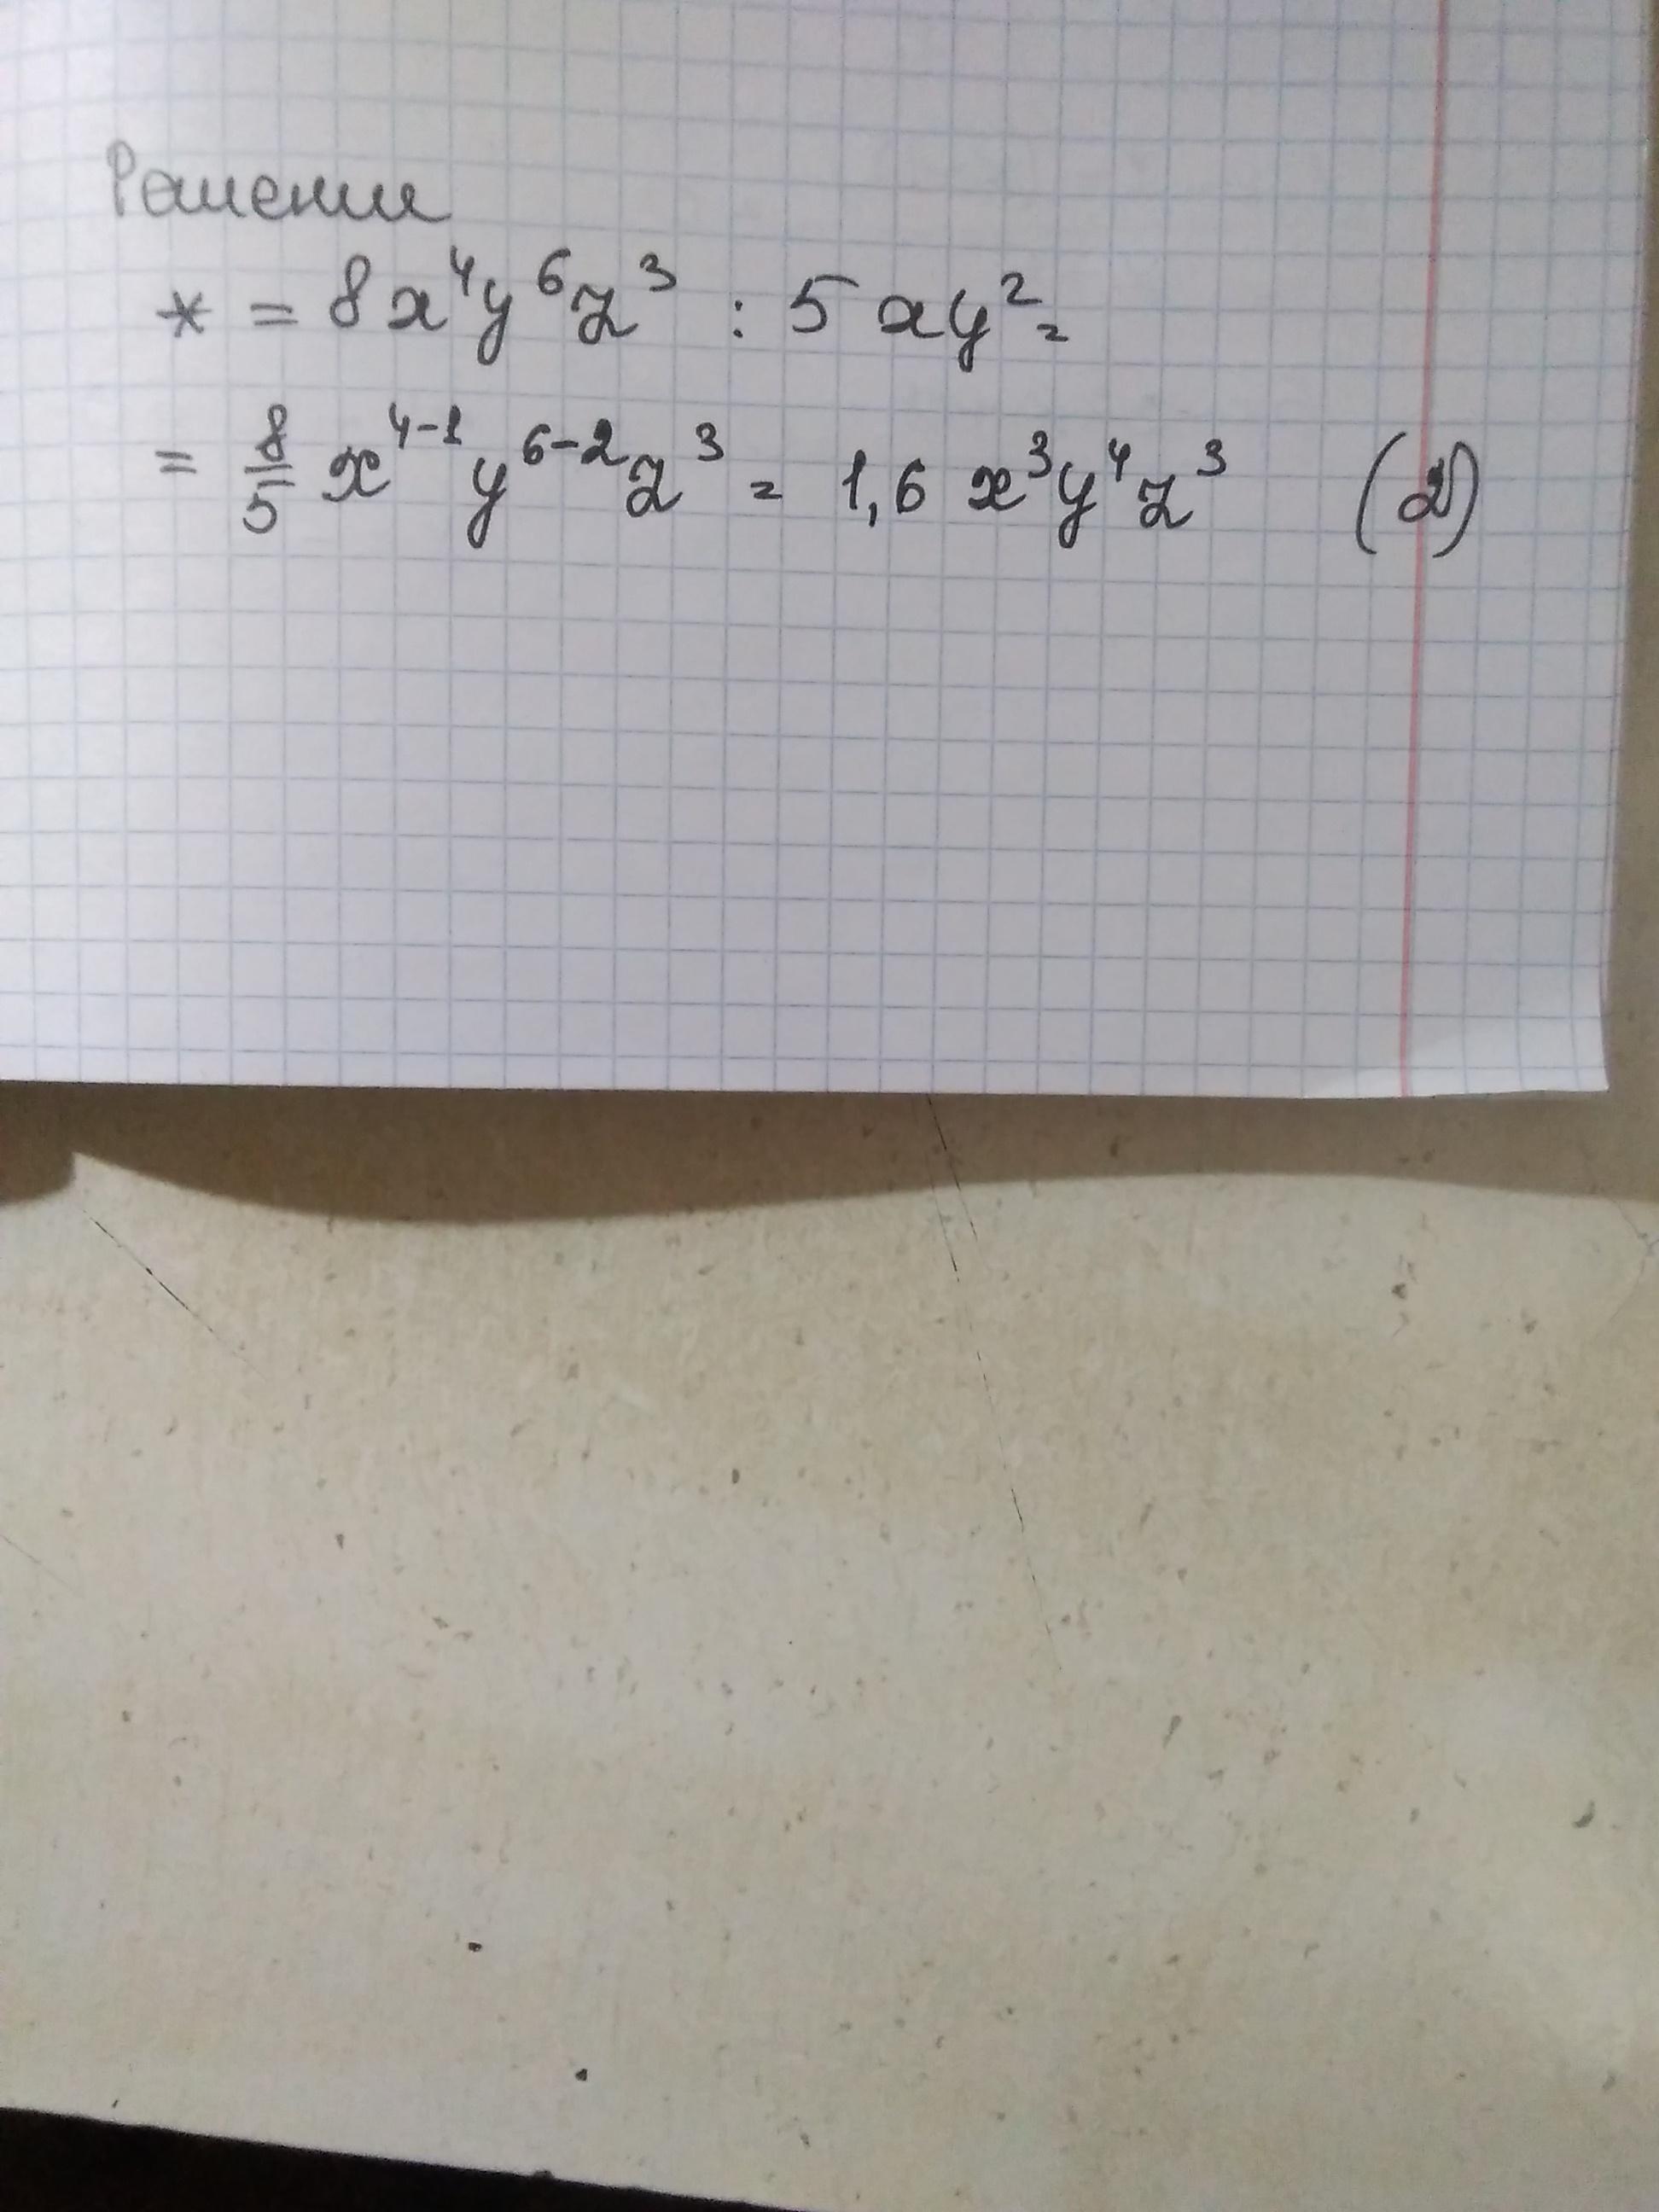 Решение
* = 8x⁴y⁶z³ : 5xy² =
= 8/5 x⁴⁻¹y⁶⁻²z³ = 1,6 x³y⁴z³ (2)